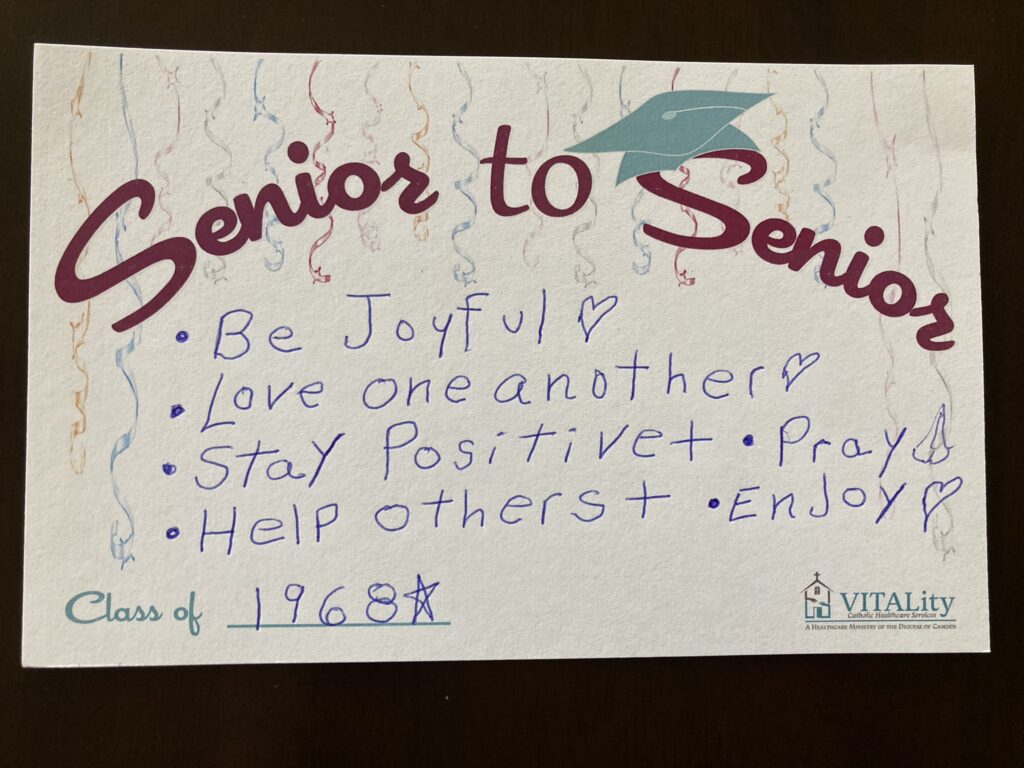 Senior to Senior
• Be Joyful ♡
• Love one another ♡
• Stay Positive + • Pray 🙏
• Help others + • Enjoy ♡
Class of 1968 ☆
VITALity
Catholic Healthcare Services
A Healthcare Ministry of the Diocese of Camden